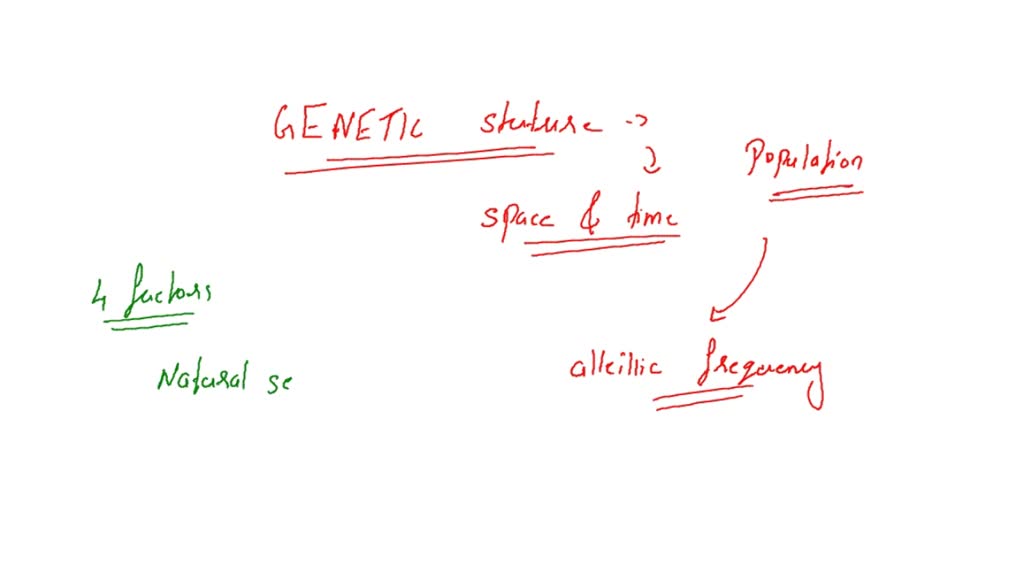 GENETIC stuture →
Population
space & time
4 factors
alleillic frequency
Natural se